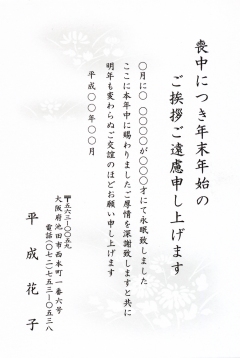 喪中につき年末年始の
ご挨拶ご遠慮申し上げます
〇月に〇 〇〇〇〇が〇〇〇才にて永眠致しました
ここに本年中に賜わりましたご厚情を深謝致しますと共に
明年も変わらぬご交誼のほどお願い申し上げます
平成〇〇年〇〇月
〒五六三―〇〇五九
大阪府池田市西本町一番六号
電話(〇七二)七五三―〇五三八
平成花子